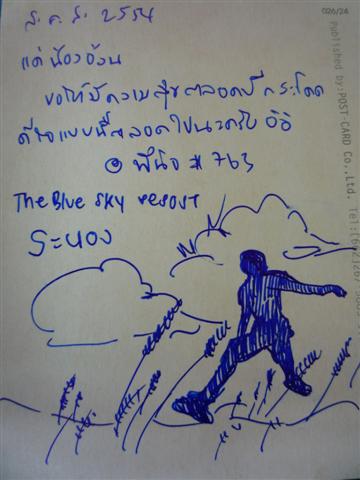 ส.ค.ส. ๒๕๕๔
แด่ น้องอ้วน
ขอให้มีความสุขตลอดปี กระโดด
ดีใจแบบนี้ตลอดไปนะครับ อิอิ
พี่นิจ # 763
The Blue Sky resort
ระนอง
026/24
Published by:POST-CARD Co.,Ltd. Tel: